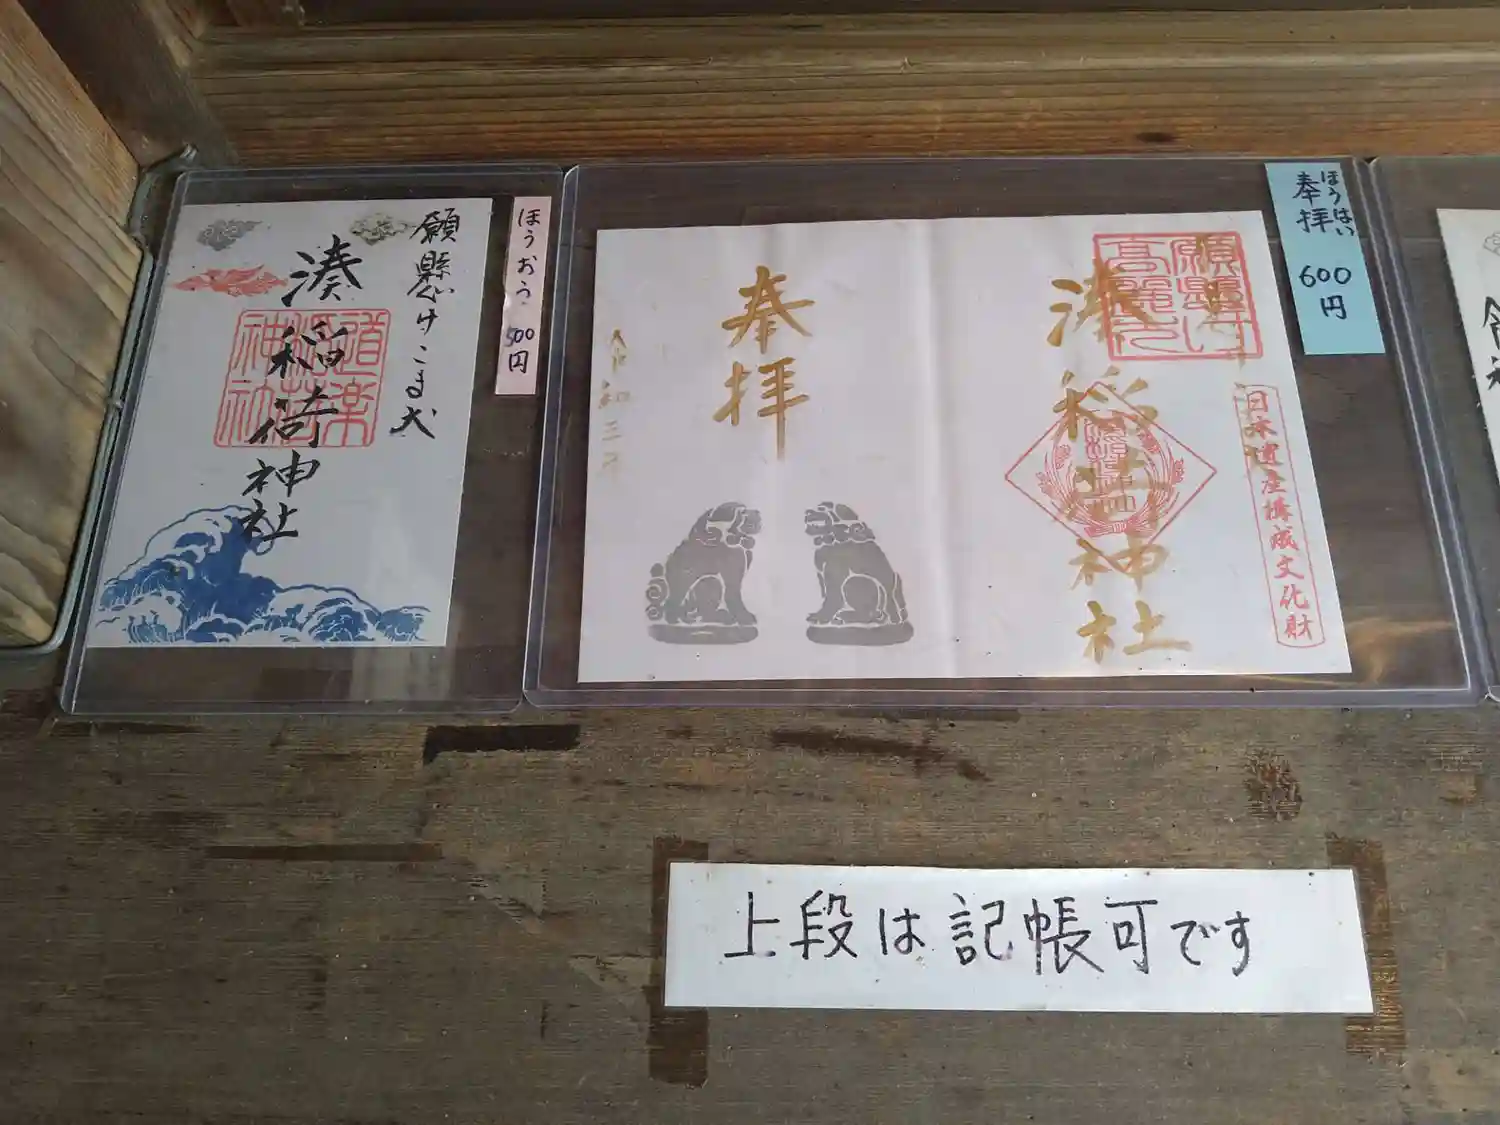 願懸けこま犬
湊稲荷神社
ほうおう
500円
湊稲荷神社
日本遺産構成文化財
奉拝
令和三年
ほうはい
奉拝
600円
上段は記帳可です